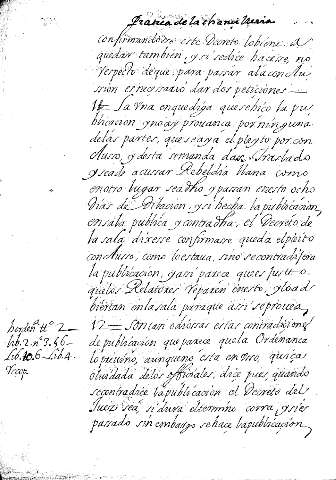 Practica de la chancilleria
confirmandose este Decreto lo bino a
quedar tambien, y si se dice hacerse, no
respecto de que, para passar a la conclu
sion es necessario dar dos peticiones
11 — La vna en que diga que se hiço la pu
blicacion, y no ay prouança, por ninguna
de las partes, que se aya el pleyto por con
cluso, y desta se manda dar Traslado
y se a de acusar Rebeldia llana como
en otro lugar se a dho, y passan en esto ocho
dias de Dilacion, y si hecha la publicacion,
en sala publica, y contradha, el Decreto de
la sala dixesse confirmasse queda el pleito
concluso, como lo estaua, sino se contradixera
la publicacion, y assi parece que es justo
que los Relatores reparen en esto, y lo ad
biertan en la sala para que assi se prouea
12 — son tan odiossas estas contradiciones
de publicacion que parece que la Ordenança
lo preuino, aunque no esta en vso, quiças
oluidada de los officiales, dice pues, quando
se contradice la publicacion el Decreto del
Juez sea, si dura el termino corra, y si es
passado sin embargo se hace la publicacion,
hordenª ttº 2 —
lib. 2. nº 3. 46 —
Lib. 10. 6 — Lib. 4.
Recop.